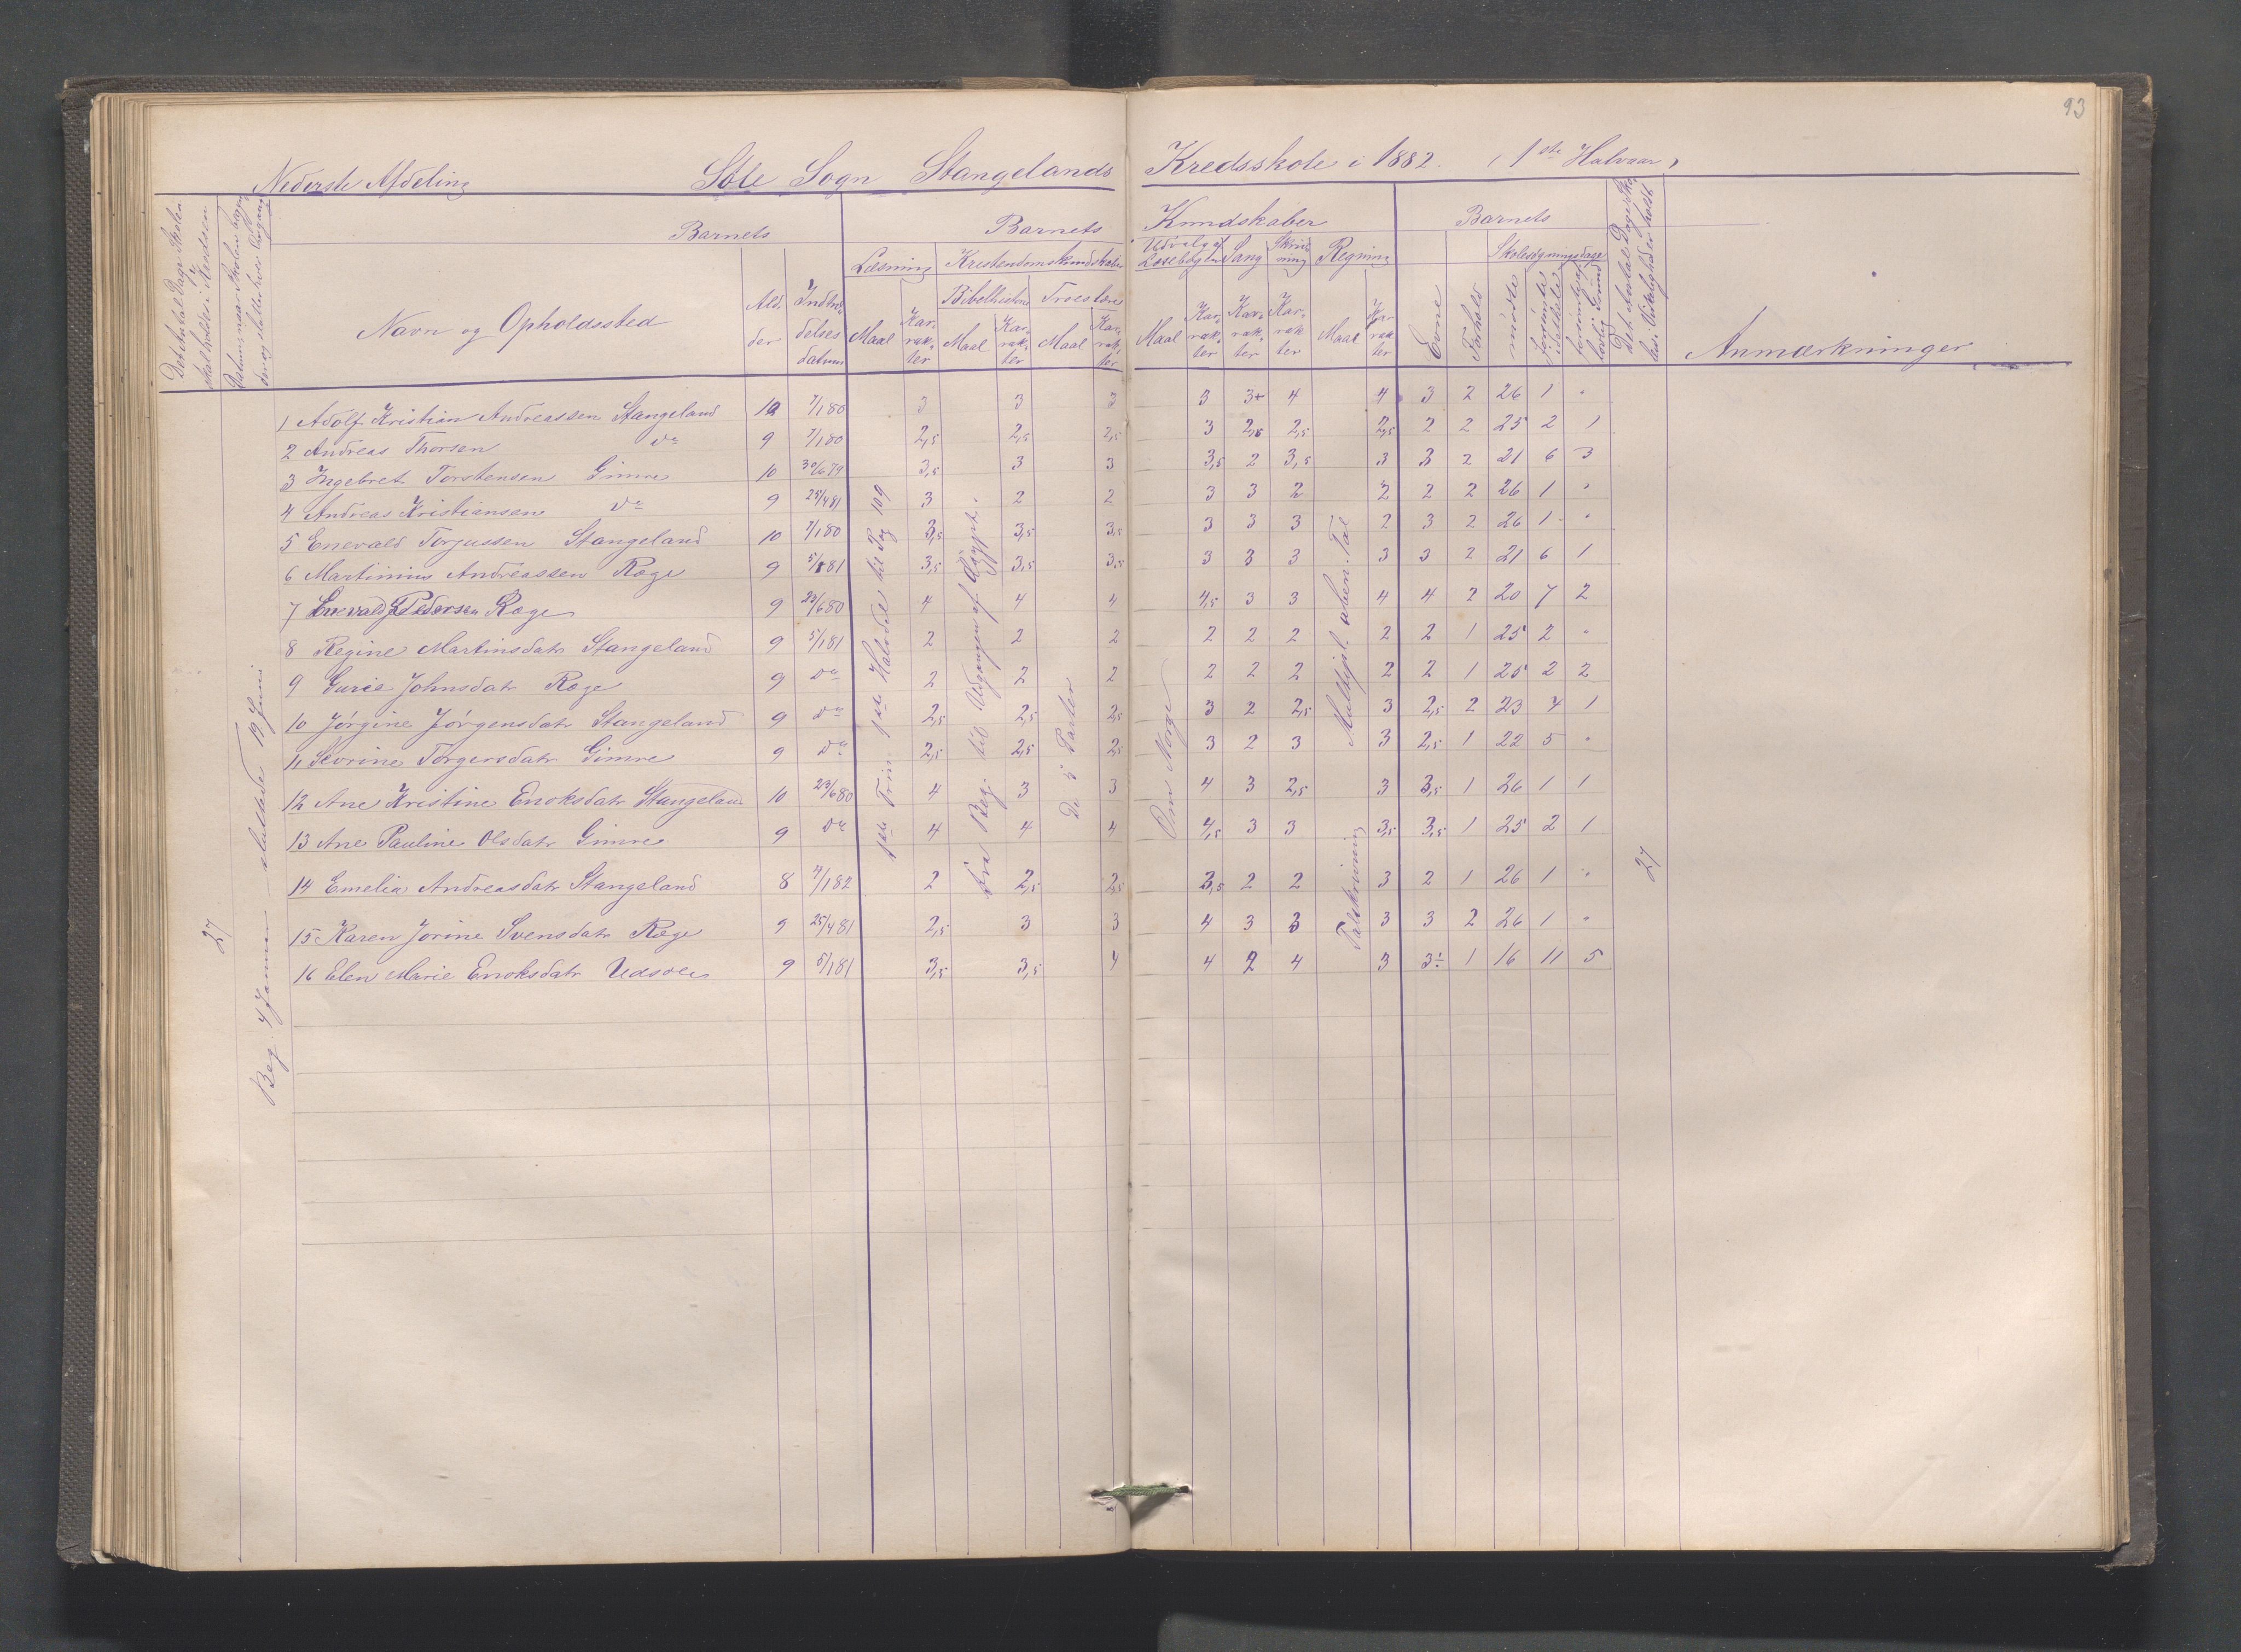 93
Nederste Afdeling Sole Sogn Stangelands Kredsskole i 1882. (1ste Halvaar)
Det Antal Dage Skolen skal holdes i Kredsen
Datum, naar Skolen begynder og slutter hver Omgang
Barnets
Navn og Opholdssted
Alder
Indtrædelsesdatum
Barnets Kundskaber
Læsning
Maal
Karakter
Kristendomskundskaber
Bibelhistorie
Maal
Karakter
Troeslære
Maal
Karakter
Udvalg af Læsebogen
Maal
Karakter
Sang
Karakter
Skrivning
Karakter
Regning
Maal
Karakter
Barnets
Evne
Forhold
Skolesøgningsdage
mødte
forsømte i det hele
forsømte af lovlig Grund
Det Antal Dage Skolen i Virkeligheden er holdt
Anmærkninger
27
Beg. 4 Januar – sluttede 19 Juni
1ste Trin 1ste Halvdel til Pag 109
Fra Beg. til Udgangen af Ægypt.
De 5 Parter
Om Norge
Talskrivning Multipl. uben. Tal
27
1 Adolf Kristian Andreassen Stangeland 10 7/1 80 3 3 3 3 3+ 4 4 3 2 26 1 "
2 Andreas Thorsen do 9 7/1 80 2,5 2,5 2,5 3 2,5 2,5 2,5 2 2 25 2 1
3 Ingebret Torstensen Gimre 10 30/6 79 3,5 3 3 3,5 2 3,5 3 3 2 21 6 3
4 Andreas Kristiansen do 9 25/4 81 3 2 2 3 3 2 2 2 2 26 1 "
5 Enevald Torjussen Stangeland 10 7/1 80 3,5 3,5 3,5 3 3 3 2 3 2 26 1 "
6 Martinius Andreassen Ræge 9 5/1 81 3,5 3,5 3,5 3 3 3 3 3 2 21 6 1
7 Enevald J Pedersen Ræge 9 23/6 80 4 4 4 4,5 3 3 4 4 2 20 7 2
8 Regine Martinsdatr Stangeland 9 5/1 81 2 2 2 2 2 2 2 2 1 25 2 "
9 Gurie Johnsdatr Ræge 9 do 2 2 2 2 2 2 2 2 1 25 2 2
10 Jørgine Jørgensdatr Stangeland 9 do 2,5 2,5 2,5 3 2 2,5 3 2,5 2 23 4 1
11 Severine Torgersdatr Gimre 9 do 2,5 2,5 2,5 3 2 3 3 2,5 1 22 5 "
12 Ane Kristine Enoksdatr Stangeland 10 23/6 80 4 3 3 4 3 2,5 3 3,5 1 26 1 1
13 Ane Pauline Olsdatr Gimre 9 do 4 4 4 4,5 3 3 3,5 3,5 1 25 2 1
14 Emelia Andreasdatr Stangeland 8 4/1 82 2 2,5 2,5 3,5 2 2 3 2 1 26 1 "
15 Karen Jorine Svensdatr Ræge 9 25/4 81 2,5 3 3 4 3 3 3 3 2 26 1 "
16 Elen Marie Enoksdatr Udsole 9 5/1 81 3,5 3,5 4 4 2 4 3 3÷ 1 16 11 5